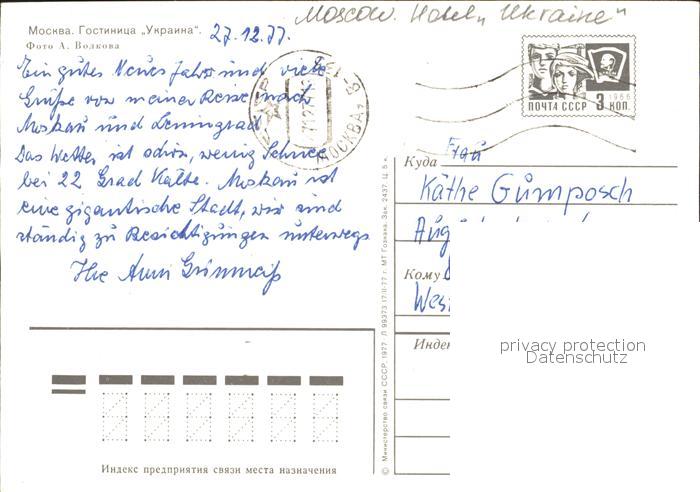 Moscow. Hotel „Ukraine"
Москва. Гостиница „Украина".
27.12.77.
Фото А. Волкова
Ein gutes Neues Jahr und viele
Grüße von meiner Reise nach
Moskau und Leningrad
Das Wetter ist schön, wenig Schnee
bei 22 Grad Kälte. Moskau ist
eine gigantische Stadt, wir sind
ständig zu Besichtigungen unterwegs
Ihre Anni
МОСКВА
ПОЧТА СССР 3 КОП.
1966
Куда
Frau
Käthe Gumposch
Aug
Кому
Wes
Индек
privacy protection
Datenschutz
Индекс предприятия связи места назначения
© Министерство связи СССР, 1977 Л 99373 17/II-77 г. МТ Гознака. Зак. 2437. Ц. 5 к.